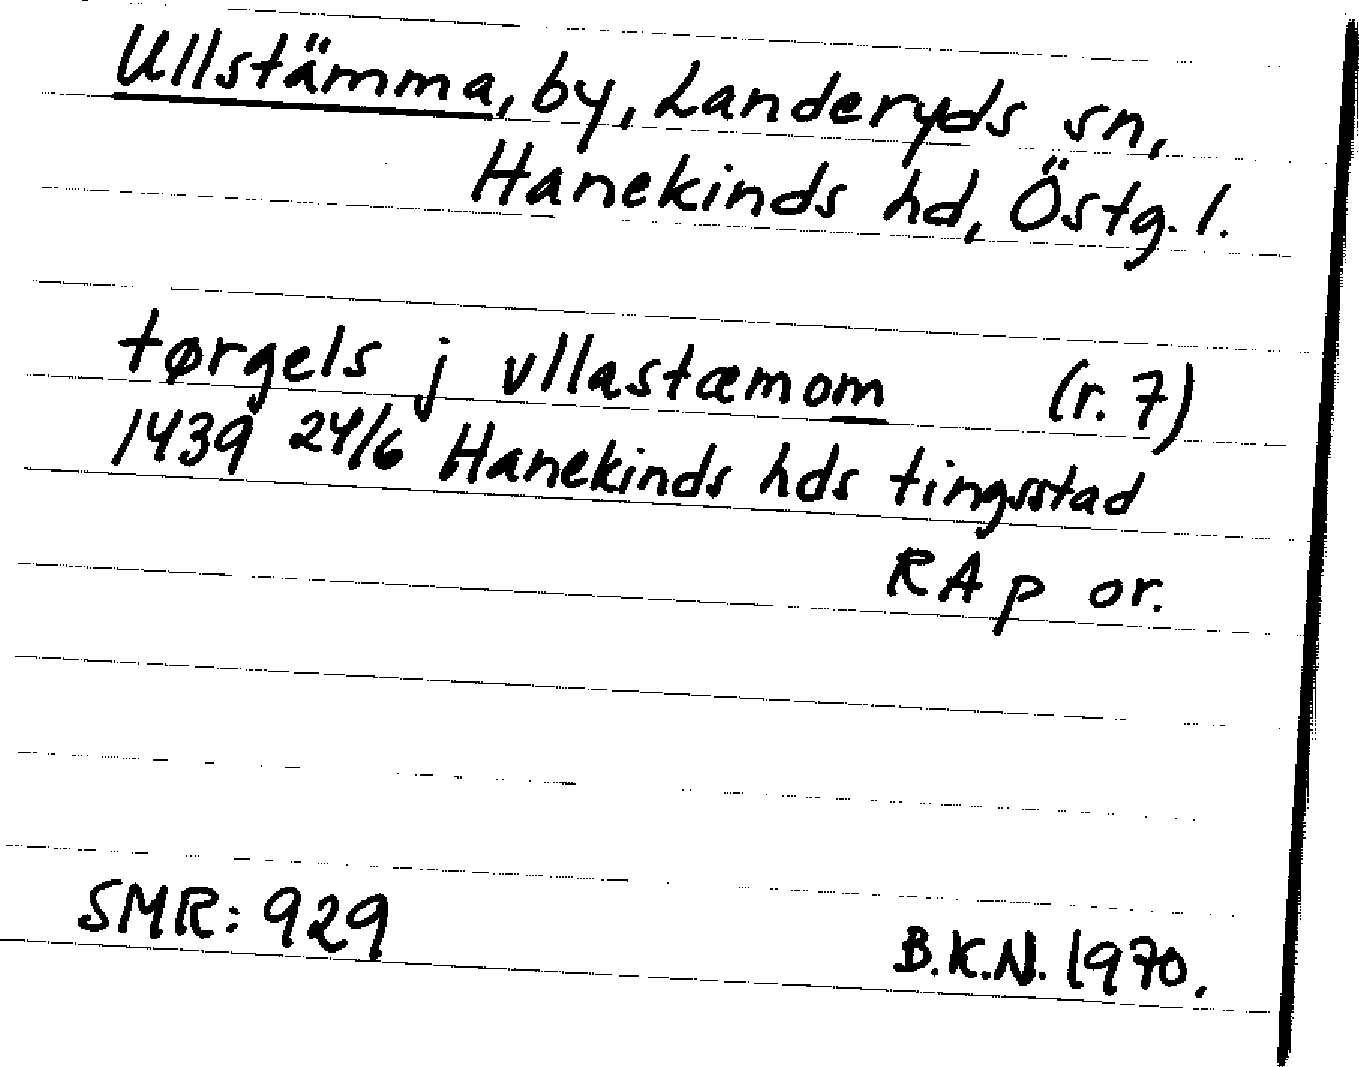 Ullstämma, by, Landeryds sn,
Hanekinds hd, Östg. l.
tørgels j vllastæmom (r. 7)
1439 24/6 Hanekinds hds tingsstad
RAp or.
SMR: 929
B.K.N. 1970.